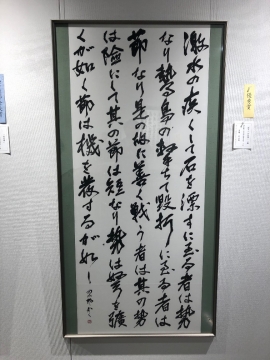 激水の疾くして石を漂すに至る者は勢
なり鷙鳥の撃ちて毀折に至る者は
節なり是の故に善く戦う者は其の勢
は険にして其の節は短なり勢は弩を彍
くが如く節は機を發するが如し